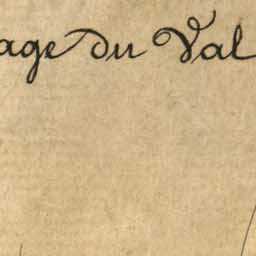 age du Val